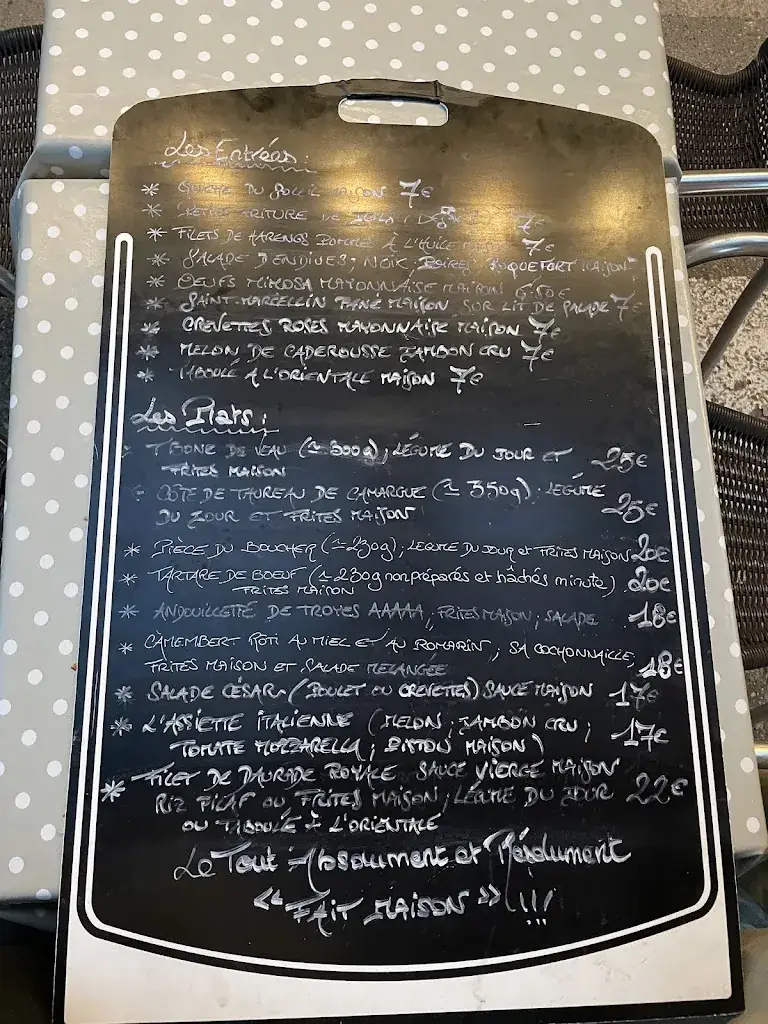 Les Entrées :
* QUICHE DU SOLEIL MAISON 7€
* FRITURE DE 7€
* FILETS DE HARENGS POMME À L'HUILE 7€
* SALADE D'ENDIVES, NOIX, POIRES, ROQUEFORT MAISON
* OEUFS MIMOSA MAYONNAISE MAISON 6.50€
* SAINT-MARCELLIN PANÉ MAISON SUR LIT DE SALADE 7€
* CREVETTES ROSES MAYONNAISE MAISON 7€
* MELON DE CADEROUSSE JAMBON CRU 7€
* TABOULÉ A L'ORIENTALE MAISON 7€
Les Plats :
* TBONE DE VEAU (≃ 300g), LÉGUME DU JOUR ET 25€
FRITES MAISON
* CÔTE DE TAUREAU DE CAMARGUE (≃ 350g), LÉGUME
DU JOUR ET FRITES MAISON 25€
* PIÈCE DU BOUCHER (≃230g), LÉGUME DU JOUR et FRITES MAISON 20€
* TARTARE DE BOEUF (≃230g non préparés et hâchés minute) 20€
FRITES MAISON
* ANDOUILLETTE DE TROYES AAAAA, FRITES MAISON, SALADE 18€
* CAMEMBERT RÔTI AU MIEL ET AU ROMARIN, SA COCHONNAILLE,
FRITES MAISON ET SALADE MELANGÉE 18€
* SALADE CÉSAR (POULET OU CREVETTES) SAUCE MAISON 17€
* L'ASSIETTE ITALIENNE (MELON, JAMBON CRU, 17€
TOMATE MOZZARELLA, PISTOU MAISON)
* FILET DE DAURADE ROYALE SAUCE VIERGE MAISON
RIZ PILAF OU FRITES MAISON, LÉGUME DU JOUR 22€
OU TABOULÉ À L'ORIENTALE
Le Tout Absolument et Résolument
« FAIT MAISON » !!!